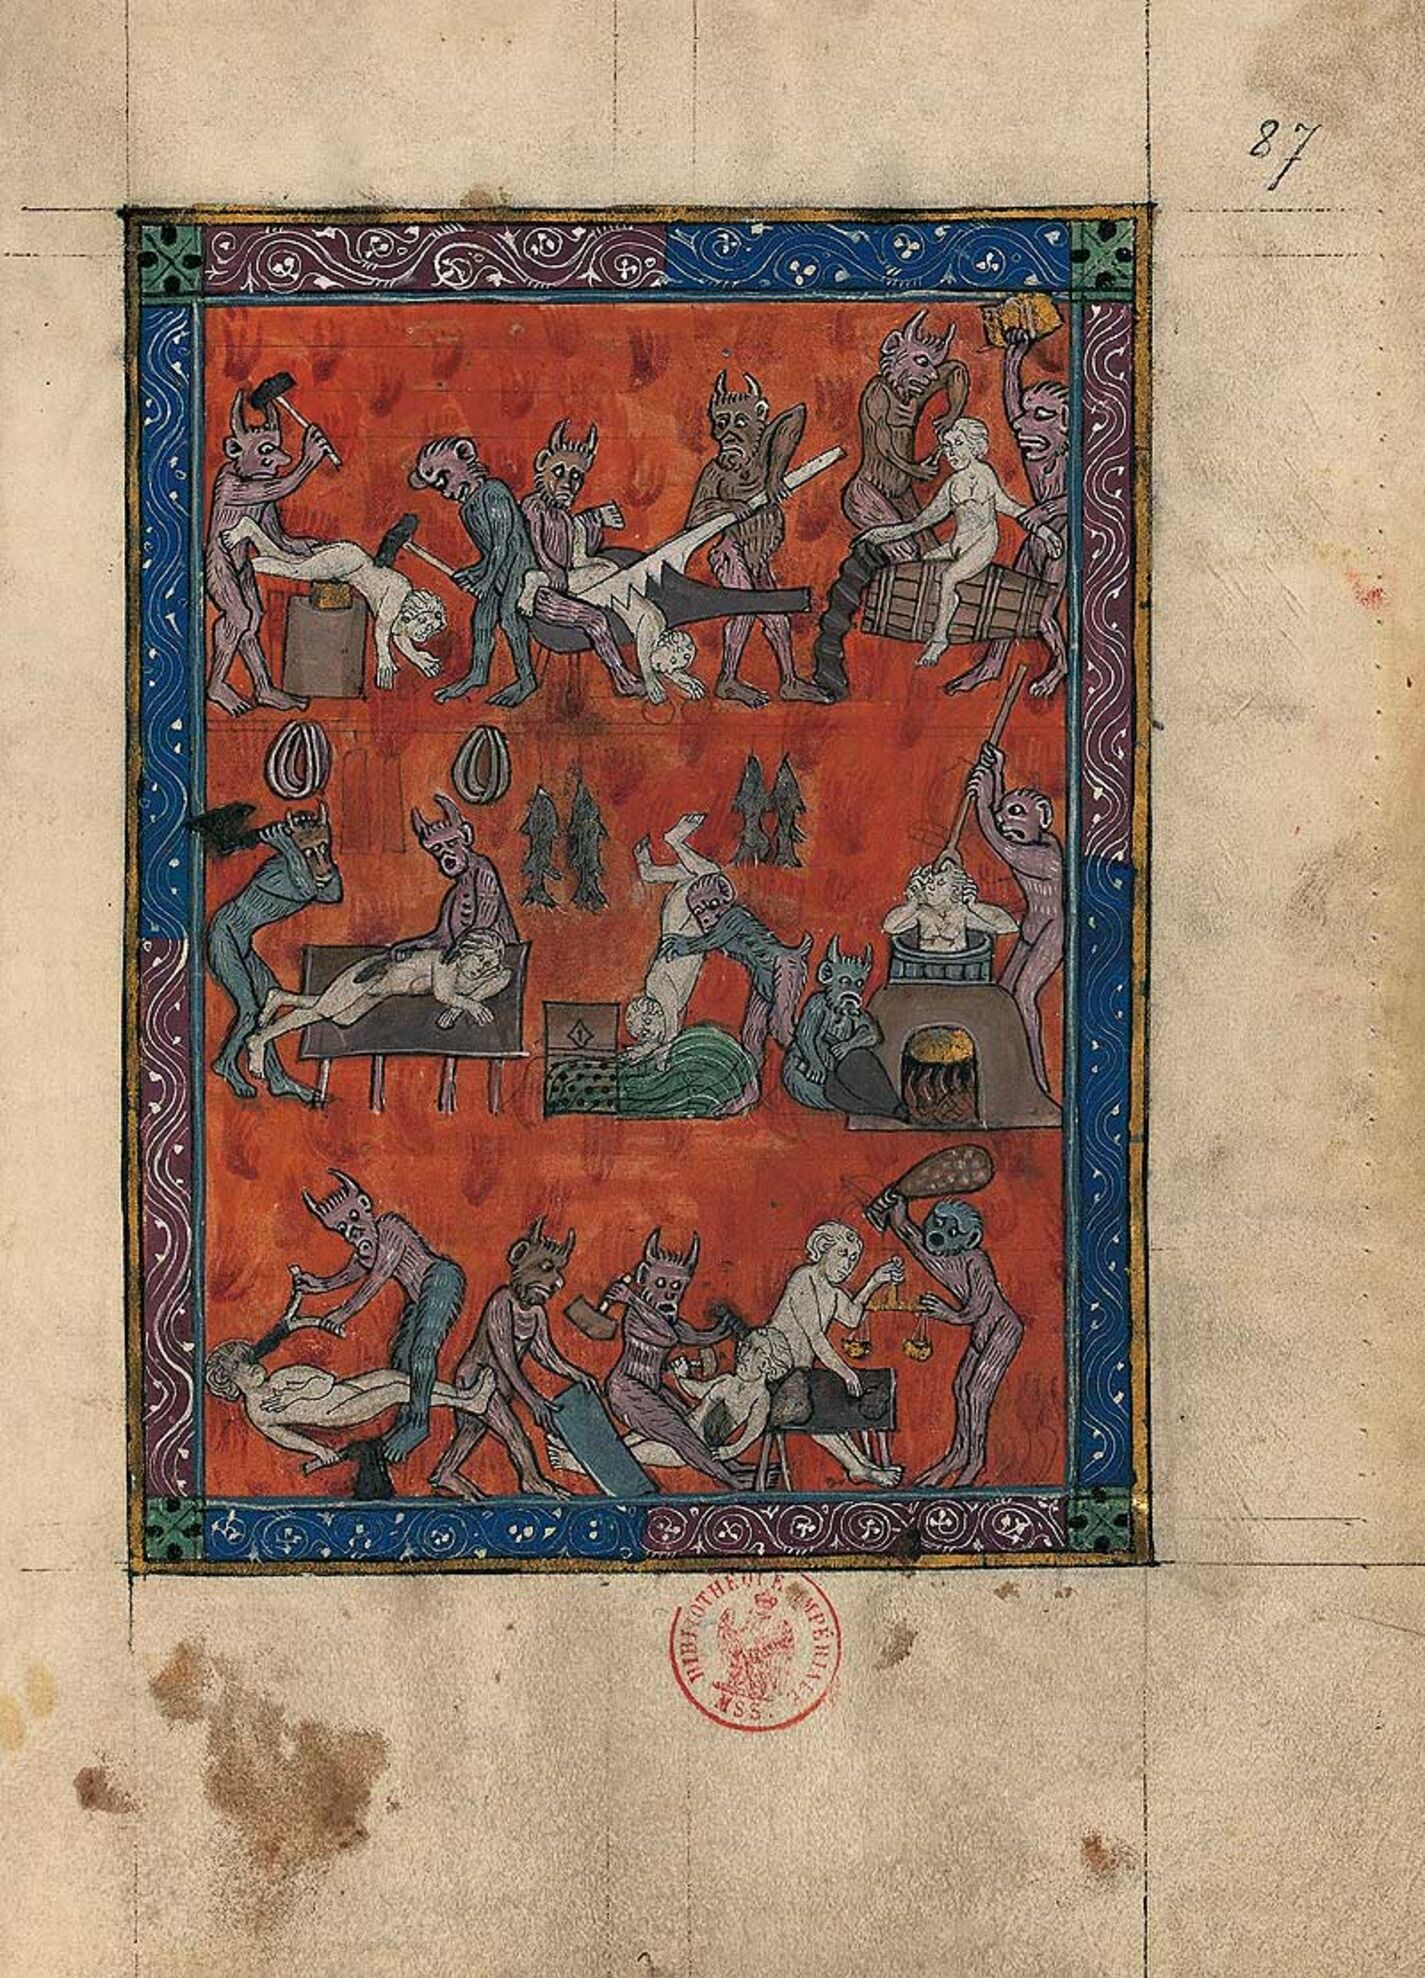 87
BIBLIOTHEQUE IMPÉRIALE
MSS.